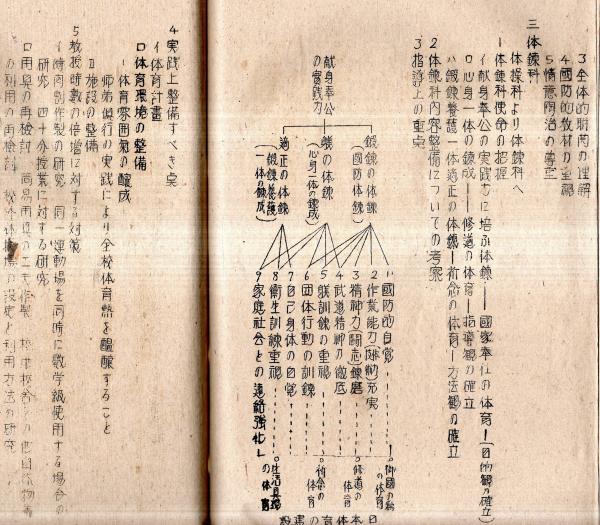 3 全体的時間の理解
4 國防的教材の重視
5 情意陶冶の尊重
三 体錬科
体操科より体錬科へ
1 体錬科使命の把握
イ 献身奉公の実践力に培ふ体錬――國家奉仕の体育――(目的観の確立)
ロ 心身一体の錬成――修道の体育――指導観の確立
ハ 鍛錬養護一体適正の体錬――祈念の体育――方法観の確立
2 体錬科内容整備についての考察
3 指導上の重点
献身奉公の実践力
鍛錬の体錬(國防体錬)
躾の体錬(心身一体の錬成)
適正の体錬(鍛錬養護一体の錬成)
1 國防的自覚
2 作業能力(体力)充実
3 精神力(闘志)錬磨
4 武道精神の徹底
5 躾訓錬の重視
6 団体行動の訓錬
7 自己身体の自覚
8 衛生訓錬重視
9 家庭社会との連絡強化
御國の
の体育
修道の体育
祈念の体育
生活
の体育
4 実践上整備すべき点
イ 体育計畫
ロ 体育環境の整備
1 体育雰囲氣の醸成
師弟併行の実践により全校体育熱を醞醸すること
Ⅱ 施設の整備
5 教授時数の倍増に対する対策
イ 時間割作製の研究 同一運動場を同時に数学級使用する場合の
研究 四十分授業に対する研究
ロ 用具の再検討 簡易用具の工夫作製
の利用の再検討 校外体操場の設定と利用方法の研究